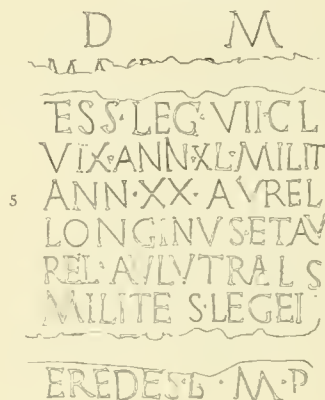 D M
ESS·LEG·VII·CL
VIX·ANN·XL·MILIT
5 ANN·XX·AVREL
LONGINVS·ETAV
REL·AVLVTRALS
MILITES·LEGEI
EREDES·B·M·P